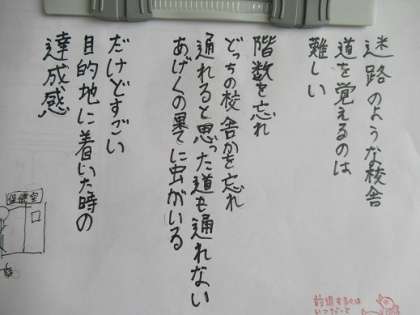 迷路のような校舎
道を覚えるのは
難しい
階数を忘れ
どっちの校舎かを忘れ
通れると思った道も通れない
あげくの果てに虫がいる
だけどすごい
目的地に着いた時の
達成感